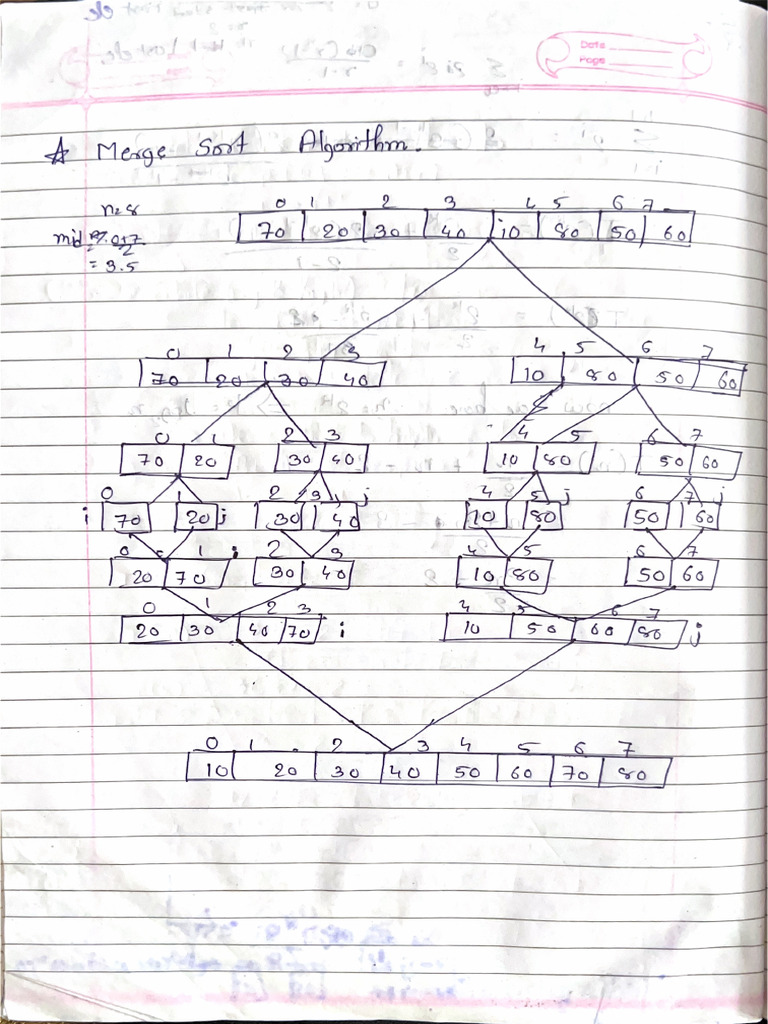 Date
Page
☆ Merge Sort Algorithm.
n=8
mid = 0+7
2
= 3.5
0 1 2 3 4 5 6 7
70 20 30 40 10 80 50 60
0 1 2 3 4 5 6 7
70 20 30 40 10 80 50 60
0 1 2 3 4 5 6 7
70 20 30 40 10 80 50 60
0 1 2 3 j 4 5 j 6 7 j
i 70 20 j 30 40 10 80 50 60
0 1 i 2 3 4 5 6 7
20 70 30 40 10 80 50 60
0 1 2 3 4 5 6 7
20 30 40 70 i 10 50 60 80 j
0 1 2 3 4 5 6 7
10 20 30 40 50 60 70 80